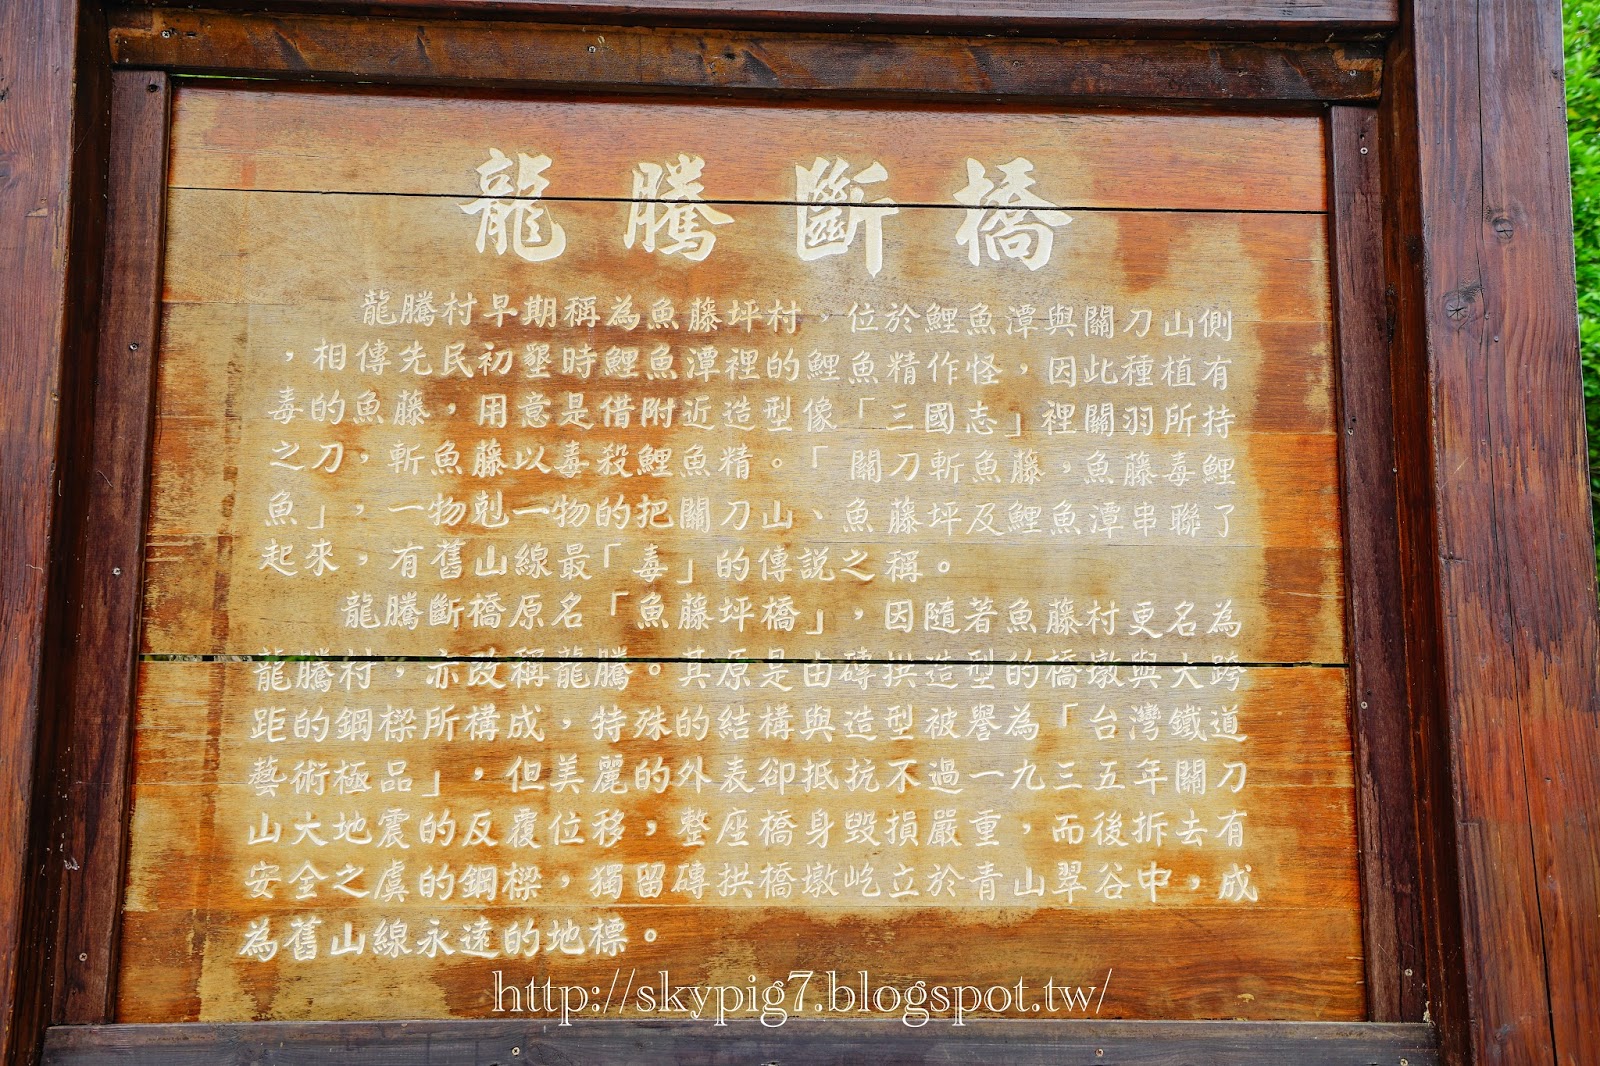 龍騰斷橋
龍騰村早期稱為魚藤坪村，位於鯉魚潭與關刀山側
，相傳先民初墾時鯉魚潭裡的鯉魚精作怪，因此種植有
毒的魚藤，用意是借附近造型像「三國志」裡關羽所持
之刀，斬魚藤以毒殺鯉魚精。「關刀斬魚藤，魚藤毒鯉
魚」，一物剋一物的把關刀山、魚藤坪及鯉魚潭串聯了
起來，有舊山線最「毒」的傳說之稱。
龍騰斷橋原名「魚藤坪橋」，因隨著魚藤村更名為
龍騰村，亦改稱龍騰。其原是由磚拱造型的橋墩與大跨
距的鋼樑所構成，特殊的結構與造型被譽為「台灣鐵道
藝術極品」，但美麗的外表卻抵抗不過一九三五年關刀
山大地震的反覆位移，整座橋身毀損嚴重，而後拆去有
安全之虞的鋼樑，獨留磚拱橋墩屹立於青山翠谷中，成
為舊山線永遠的地標。
http://skypig7.blogspot.tw/